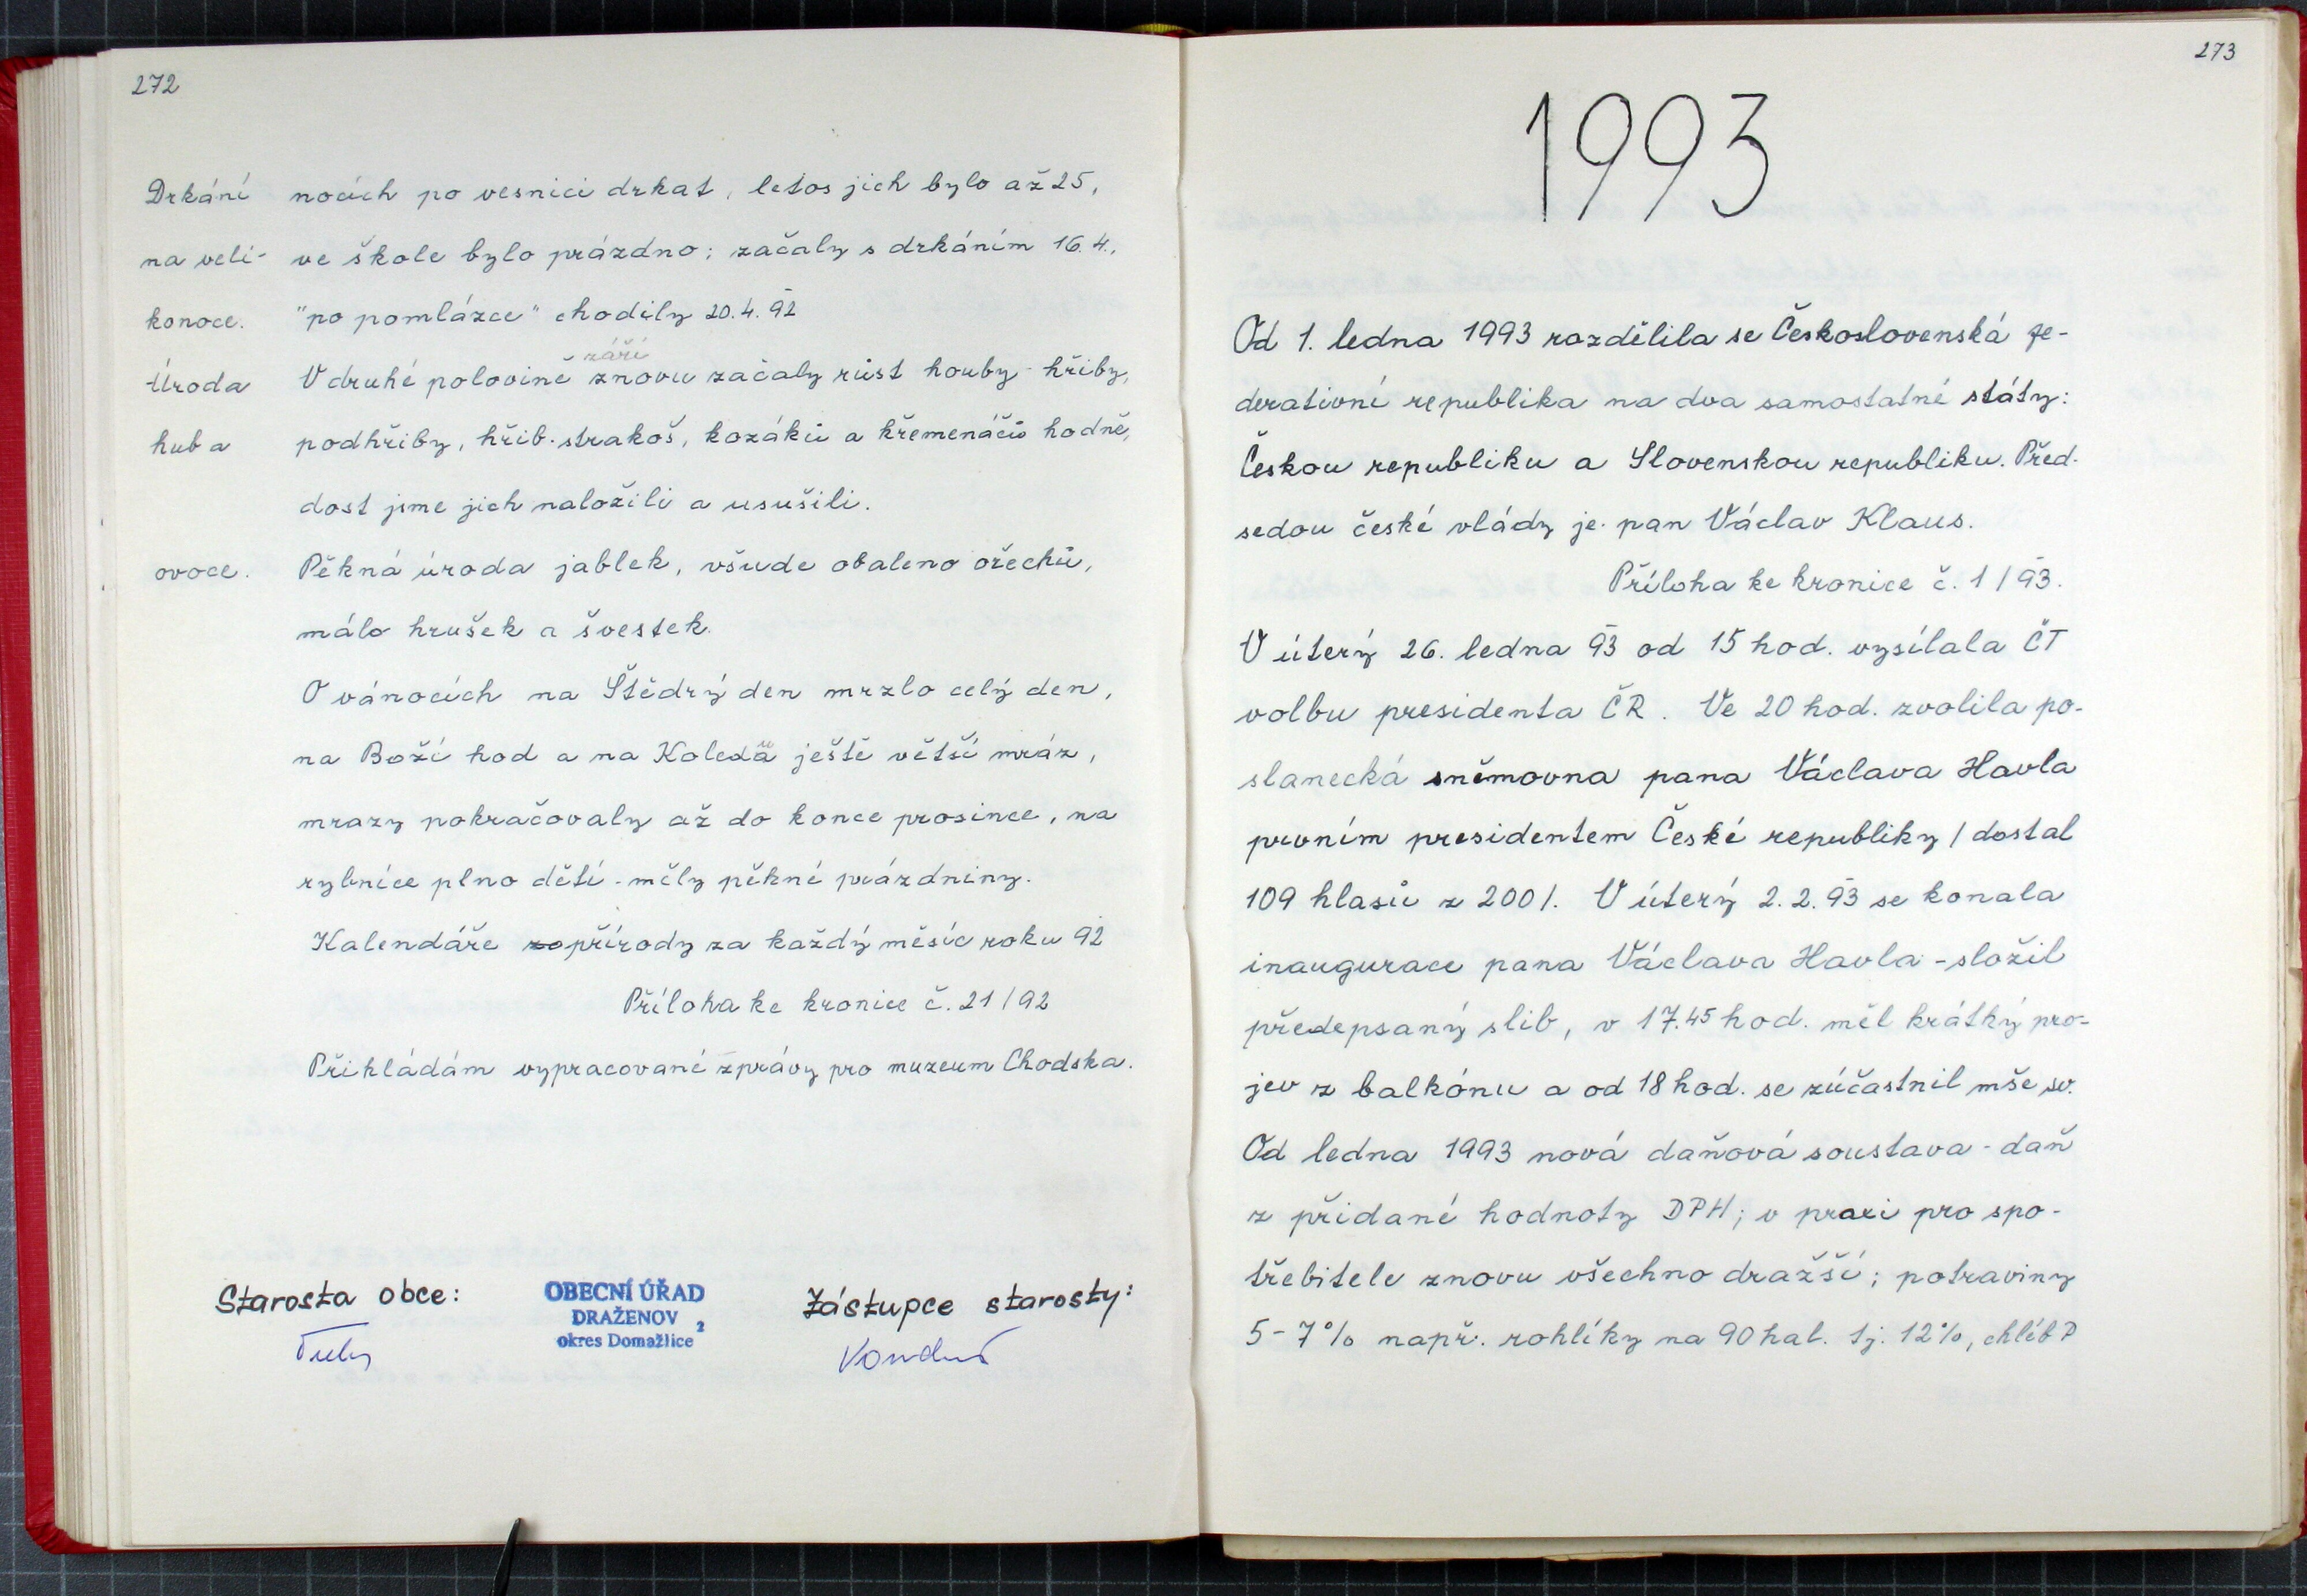 272
Drkání nocích po vesnici drkat, letos jich bylo až 25,
na veli- ve škole bylo prázdno; začaly s drkáním 16.4.,
konoce. "po pomlázce" chodily 20.4. 92
září
Úroda V druhé polovině znovu začaly růst houby - hřiby,
hub a podhřiby, hřib-strakoš, kozáků a křemenáčů hodně,
dost jsme jich naložili a usušili.
ovoce. Pěkná úroda jablek, všude obaleno ořechů,
málo hrušek a švestek.
O vánocích na Štědrý den mrzlo celý den,
na Boží hod a na Koledu ještě větší mráz,
mrazy pokračovaly až do konce prosince, na
rybníce plno dětí - měly pěkné prázdniny.
Kalendáře přírody za každý měsíc roku 92
Příloha ke kronice č. 21/92
Přikládám vypracované zprávy pro muzeum Chodska.
Starosta obce: OBECNÍ ÚŘAD Zástupce starosty:
DRAŽENOV 2
okres Domažlice
273
1993
Od 1. ledna 1993 rozdělila se Československá fe-
derativní republika na dva samostatné státy:
Českou republiku a Slovenskou republiku. Před-
sedou české vlády je pan Václav Klaus.
Příloha ke kronice č. 1/93.
V úterý 26. ledna 93 od 15 hod. vysílala ČT
volbu presidenta ČR. Ve 20 hod. zvolila po-
slanecká sněmovna pana Václava Havla
prvním presidentem České republiky /dostal
109 hlasů z 200/. V úterý 2.2.93 se konala
inaugurace pana Václava Havla - složil
předepsaný slib, v 17.45 hod. měl krátký pro-
jev z balkónu a od 18 hod. se zúčastnil mše sv.
Od ledna 1993 nová daňová soustava - daň
z přidané hodnoty DPH; v praxi pro spo-
třebitele znovu všechno dražší; potraviny
5-7% např. rohlíky na 90 hal. tj. 12%, chléb